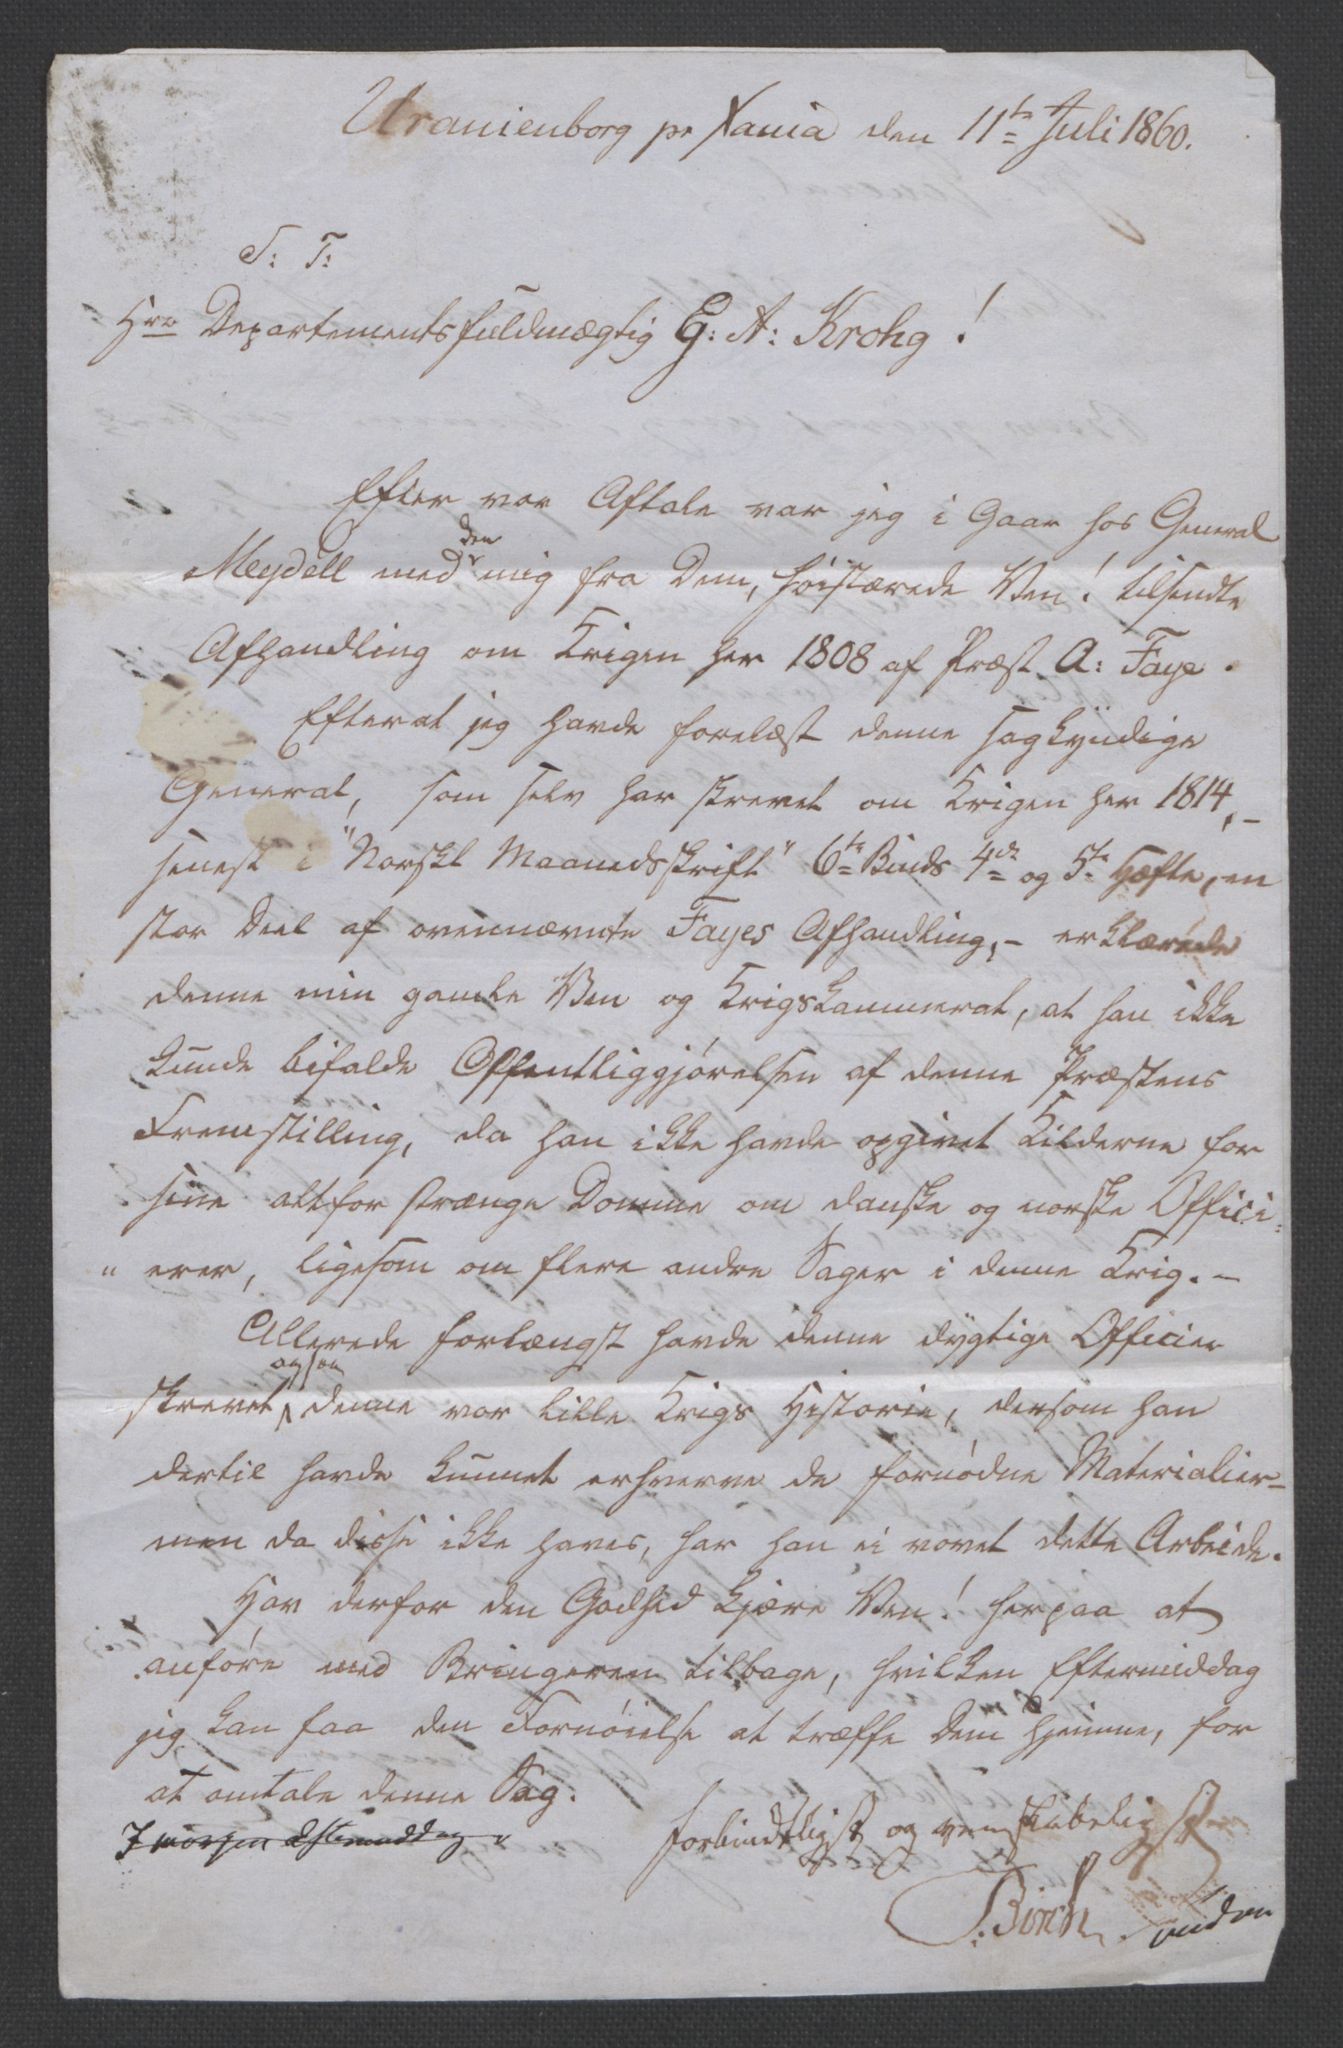 Uranienborg pr Xania den 11te Juli 1860.
S: T:
Hrr Departementsfuldmægtig G: A: Krohg!
Efter vor Aftale var jeg i Gaar hos General
Meydell med den mig fra Dem, høistærede Ven! tilsendte
Afhandling om Krigen her 1808 af Præst A: Faye.
Efterat jeg havde forelæst denne sagkyndige
General, som selv har skrevet om Krigen her 1814,-
senest i "Norskt Maanedsskrift" 6te Binds 4de og 5te Hæfte, en
stor Deel af ovennævnte Fayes Afhandling,- erklærede
denne min gamle Ven og Krigskammerat, at han ikke
kunde bifalde Offentliggjørelsen af denne Præstens
Fremstilling, da han ikke havde opgivet Kilderne for
sine altfor strænge Domme om danske og norske Offici=
"erer, ligesom om flere andre Sager i denne Krig.-
Allerede forlængst havde denne dygtige Officier
skrevet ogsaa denne vor lille Krigs Historie, dersom han
dertil havde kunnet erhverve de fornødne Materialier-
men da disse ikke haves, har han ei vovet dette Arbeide.
Hav derfor den Godhed kjære Ven! herpaa at
anføre med Bringeren tilbage, hvilken Eftermiddag
jeg kan faa den Fornøielse at træffe Dem hjemme, for
at omtale denne Sag.
forbindtligst og venskabeligst
I morgen Eftermiddag
Birch